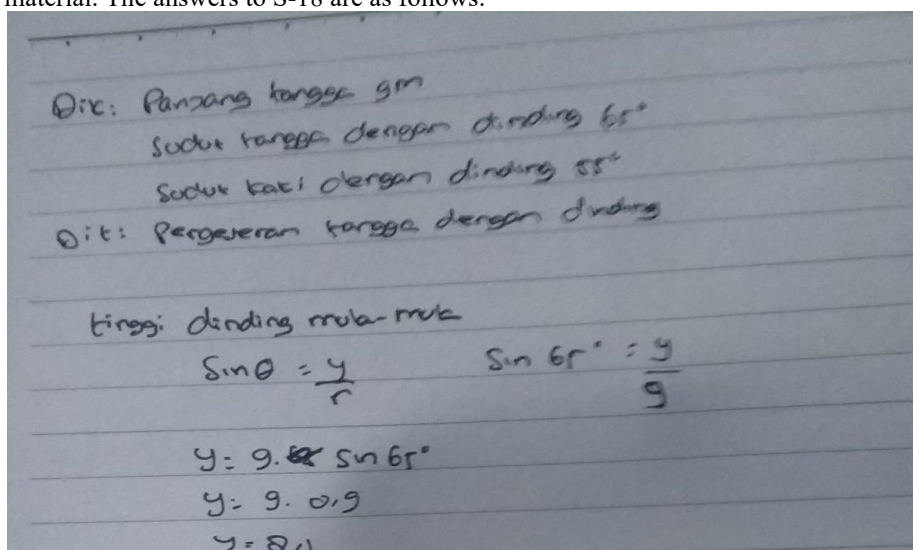 material. The answers to S-18 are as follows:
Dik: Panjang tangga 9m
Sudut tangga dengan dinding 65°
Sudut kaki dengan dinding 55°
Dit: Pergeseran tangga dengan dinding
tinggi dinding mula-mula
Sin θ = y/r Sin 65° = y/9
y = 9. sin 65°
y = 9. 0,9
y = 8,1